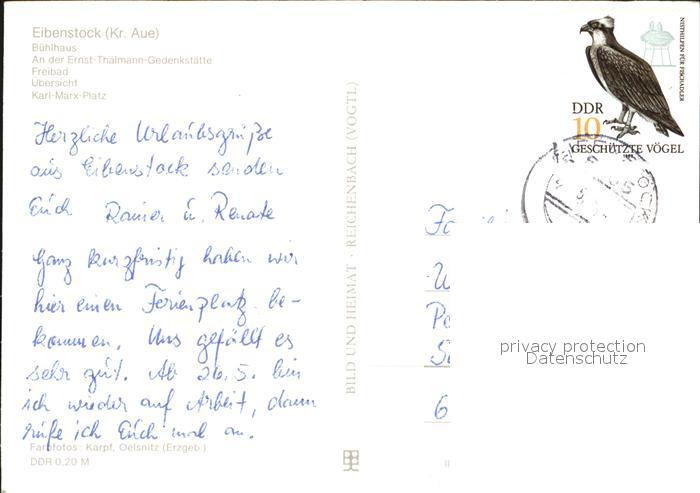 Eibenstock (Kr. Aue)
Bühlhaus
An der Ernst-Thälmann-Gedenkstätte
Freibad
Übersicht
Karl-Marx-Platz
Herzliche Urlaubsgrüße
aus Eibenstock senden
Euch Rainer u. Renate
Ganz kurzfristig haben wir
hier einen Ferienplatz be-
kommen. Uns gefällt es
sehr gut. Ab 26.5. bin
ich wieder auf Arbeit, dann
rufe ich Euch mal an.
Farbfotos: Karpf, Oelsnitz (Erzgeb.)
DDR 0,20 M
BILD UND HEIMAT · REICHENBACH (VOGTL)
NISTHILFEN FÜR FISCHADLER
DDR
10
GESCHÜTZTE VÖGEL
Fa
W
Po
6
privacy protection
Datenschutz